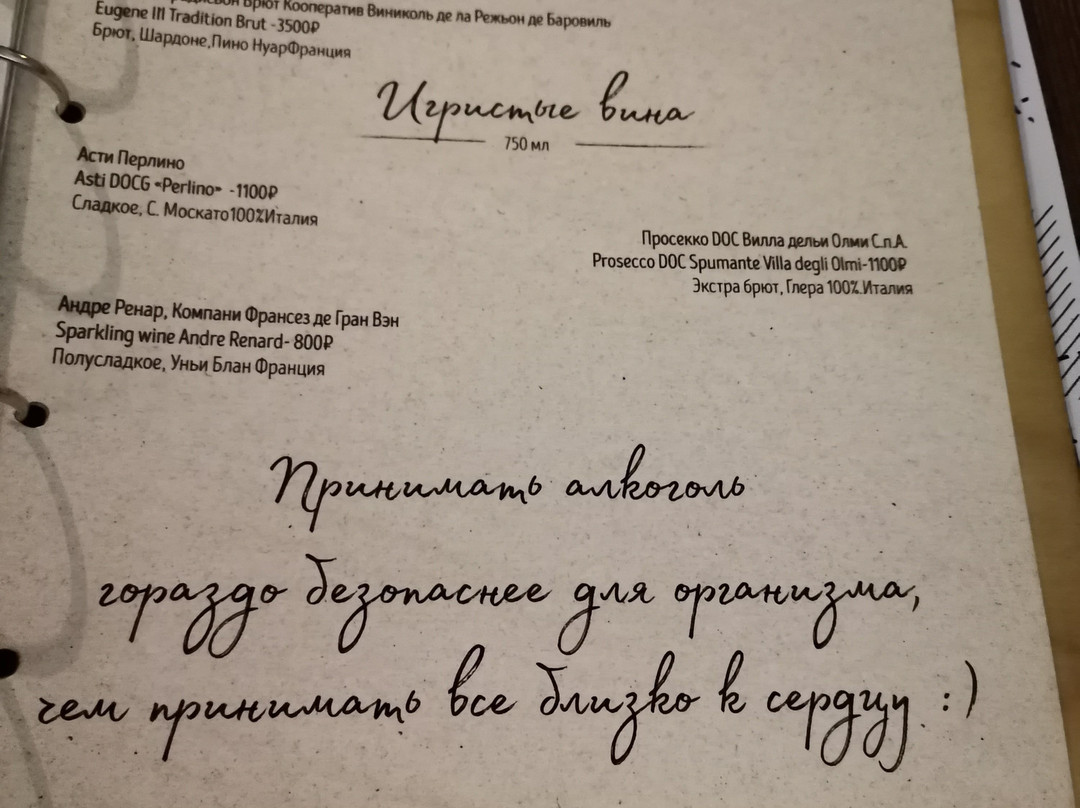 Брют Кооператив Виниколь де ла Режьон де Баровиль
Eugene III Tradition Brut -3500₽
Брют, Шардоне,Пино НуарФранция
Игристые вина
750 мл
Асти Перлино
Asti DOCG «Perlino» -1100₽
Сладкое, С. Москато100%Италия
Просекко DOC Вилла дельи Олми С.п.А.
Prosecco DOC Spumante Villa degli Olmi-1100₽
Экстра брют, Глера 100%.Италия
Андре Ренар, Компани Франсез де Гран Вэн
Sparkling wine Andre Renard- 800₽
Полусладкое, Уньи Блан Франция
Принимать алкоголь
гораздо безопаснее для организма,
чем принимать все близко к сердцу :)